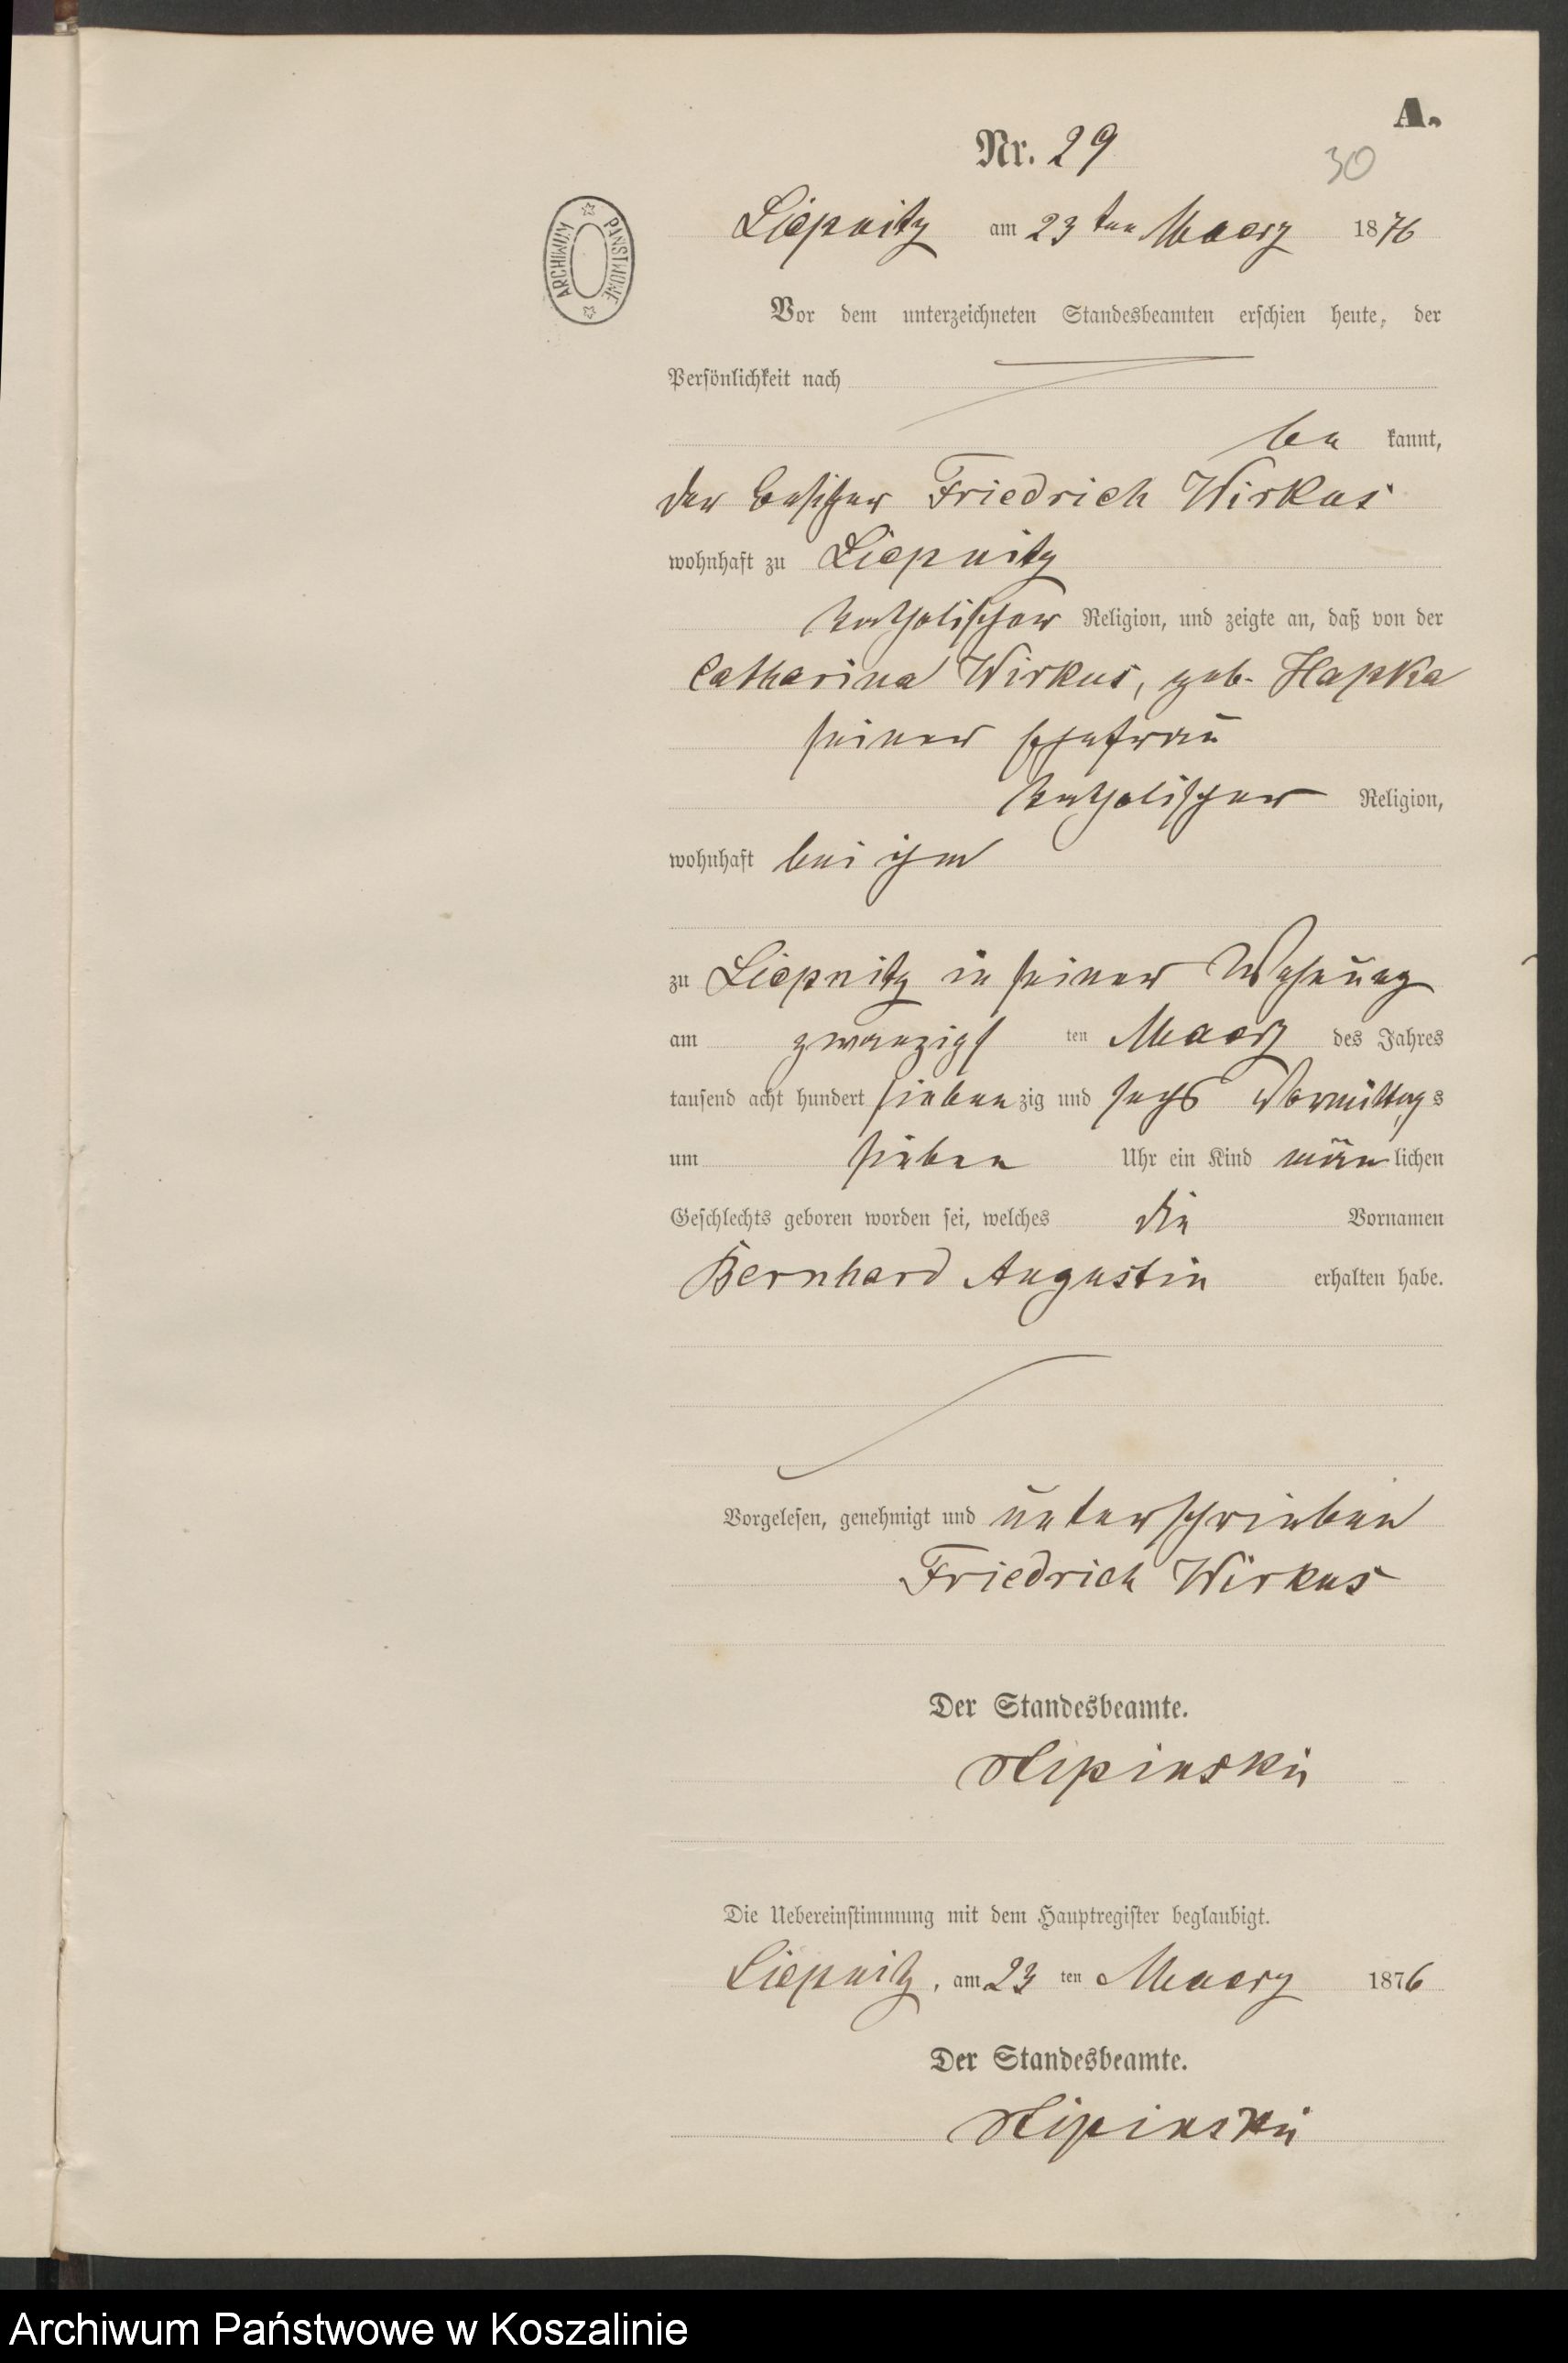 A.
Nr. 29
30
Liepnitz am 23 ten Maerz 1876
ARCHIWUM PAŃSTWOWE
Vor dem unterzeichneten Standesbeamten erschien heute, der
Persönlichkeit nach
be kannt,
der Besitzer Friedrich Wirkus
wohnhaft zu Liepnitz
katholischer Religion, und zeigte an, daß von der
Catharina Wirkus, geb. Hapka
seiner Ehefrau
katholischer Religion,
wohnhaft bei ihm
zu Liepnitz in seiner Wohnung
am zwanzigs ten Maerz des Jahres
tausend acht hundert sieben zig und sechs Vormittags
um sieben Uhr ein Kind män̄lichen
Geschlechts geboren worden sei, welches die Vornamen
Bernhard Augustin erhalten habe.
Vorgelesen, genehmigt und unterschrieben
Friedrich Wirkus
Der Standesbeamte.
Die Uebereinstimmung mit dem Hauptregister beglaubigt.
Liepnitz, am 23 ten Maerz 1876
Der Standesbeamte.
Archiwum Państwowe w Koszalinie